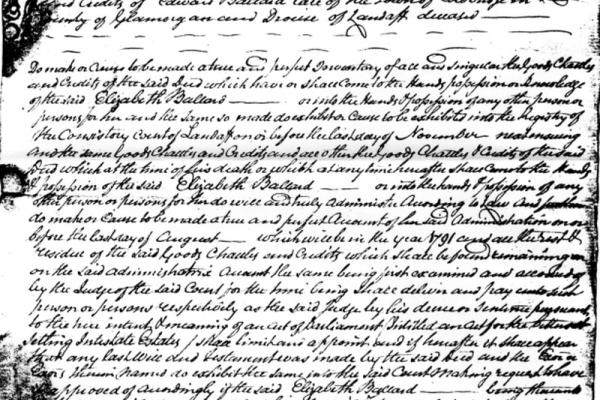 and Credits of Edward Ballard late of the Town of
County of Glamorgan and Diocese of Landaff deceased
Do make or Cause to be made a true and perfect Inventory of all and Singular the Goods Chattles
and Credits of the said Decd which have or shall come to the Hands possession or knowledge
of the said Elizabeth Ballard or into the Hands & possession of any other person or
persons for her and the same so made do exhibit or Cause to be exhibited into the Registry of
the Consistory Court of Landaff on or before the last day of November next ensuing
and the same Goods Chattles and Credits and all other the Goods Chattles & Credits of the said
Decd which at the time of his death or which at any time hereafter shall come to the Hands
& possession of the said Elizabeth Ballard or into the hands & possession of any
other person or persons for her do well and truly Administer According to Law And further
do make or Cause to be made a true and perfect Account of her said Administration on or
before the last day of August which will be in the year 1791 and all the rest &
residue of the said Goods Chattles and Credits which shall be found remaining upon
on the said Administratrix Account the same being first examined and allowed of
by the Judge of the said Court for the time being shall deliver and pay unto such
person or persons respectively as the said Judge by his decree or Sentence pursuant
to the true intent & meaning of an Act of Parliament Intitled an Act for the better
Settling Intestate Estates / shall limit and appoint and if hereafter it shall appear
that any last Will and Testament was made by the said Decd and the Exor or
Exors therein named do exhibit the same into the said Court making request to have
it approved of Accordingly if the said Elizabeth Ballard being thereunto